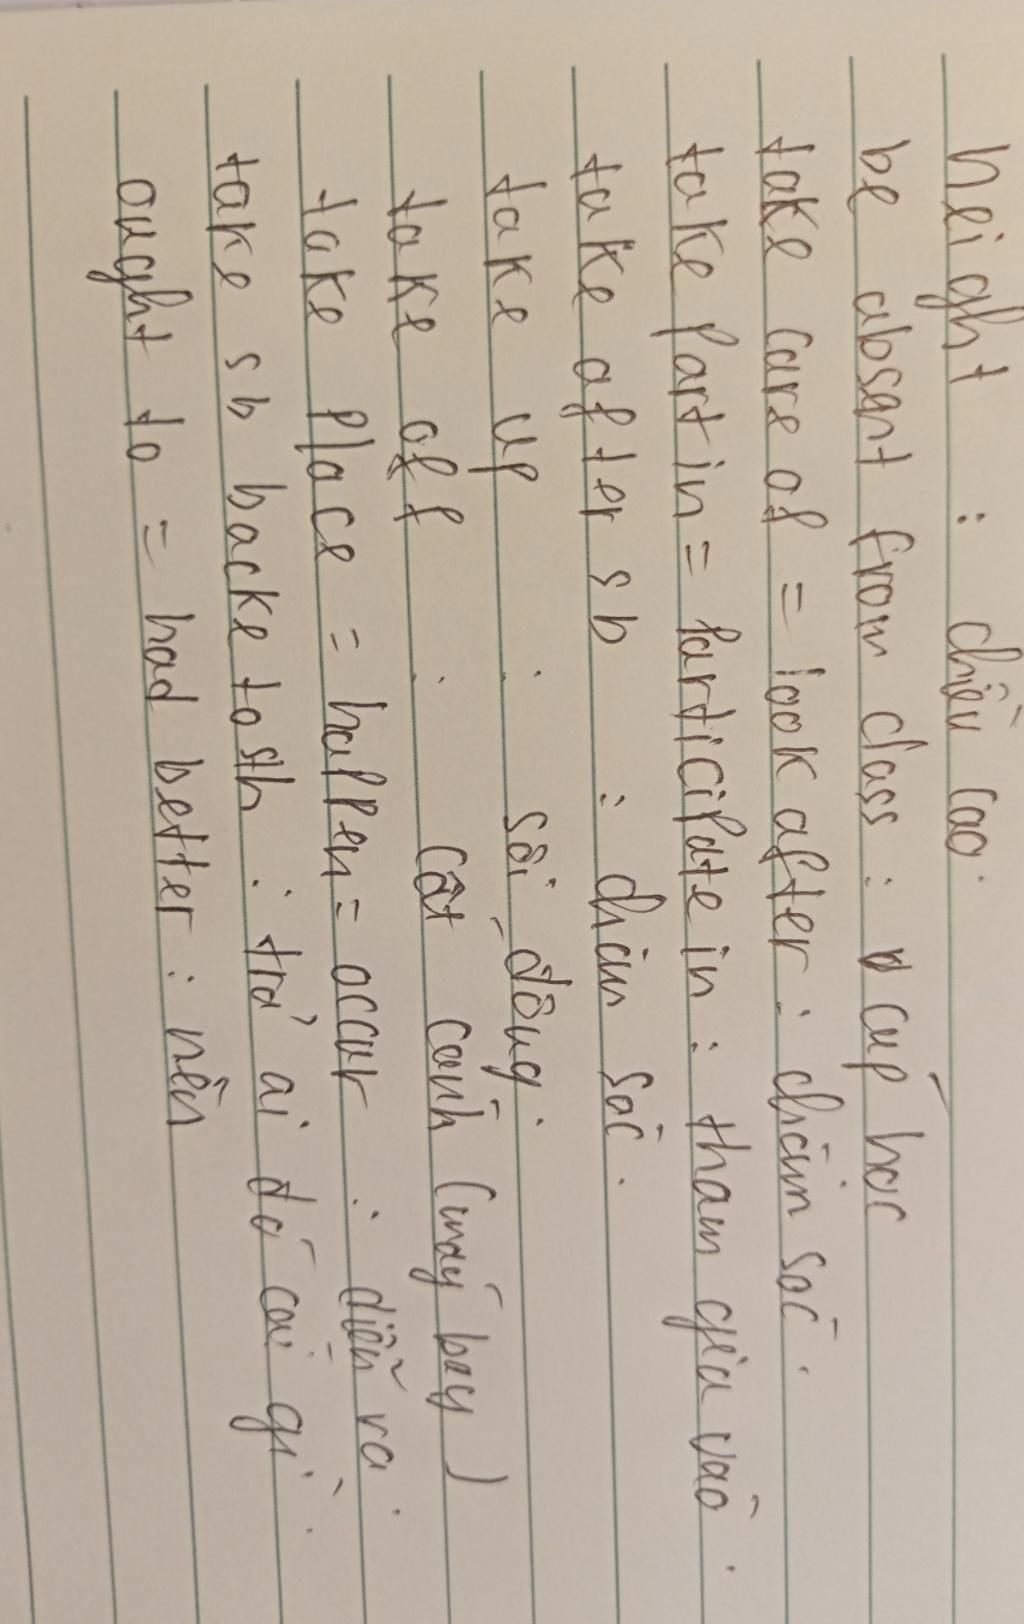 height : chiều cao.
be absant from class : cúp học
take care of = look after : chăm sóc.
take part in = participate in : tham gia vào.
take after sb : chăm sóc.
take up : sôi động.
take off : cất cánh (máy bay)
take place = happen = occur : diễn ra.
take sb backe to sth : trả ai đó cái gì.
ought to = had better : nên